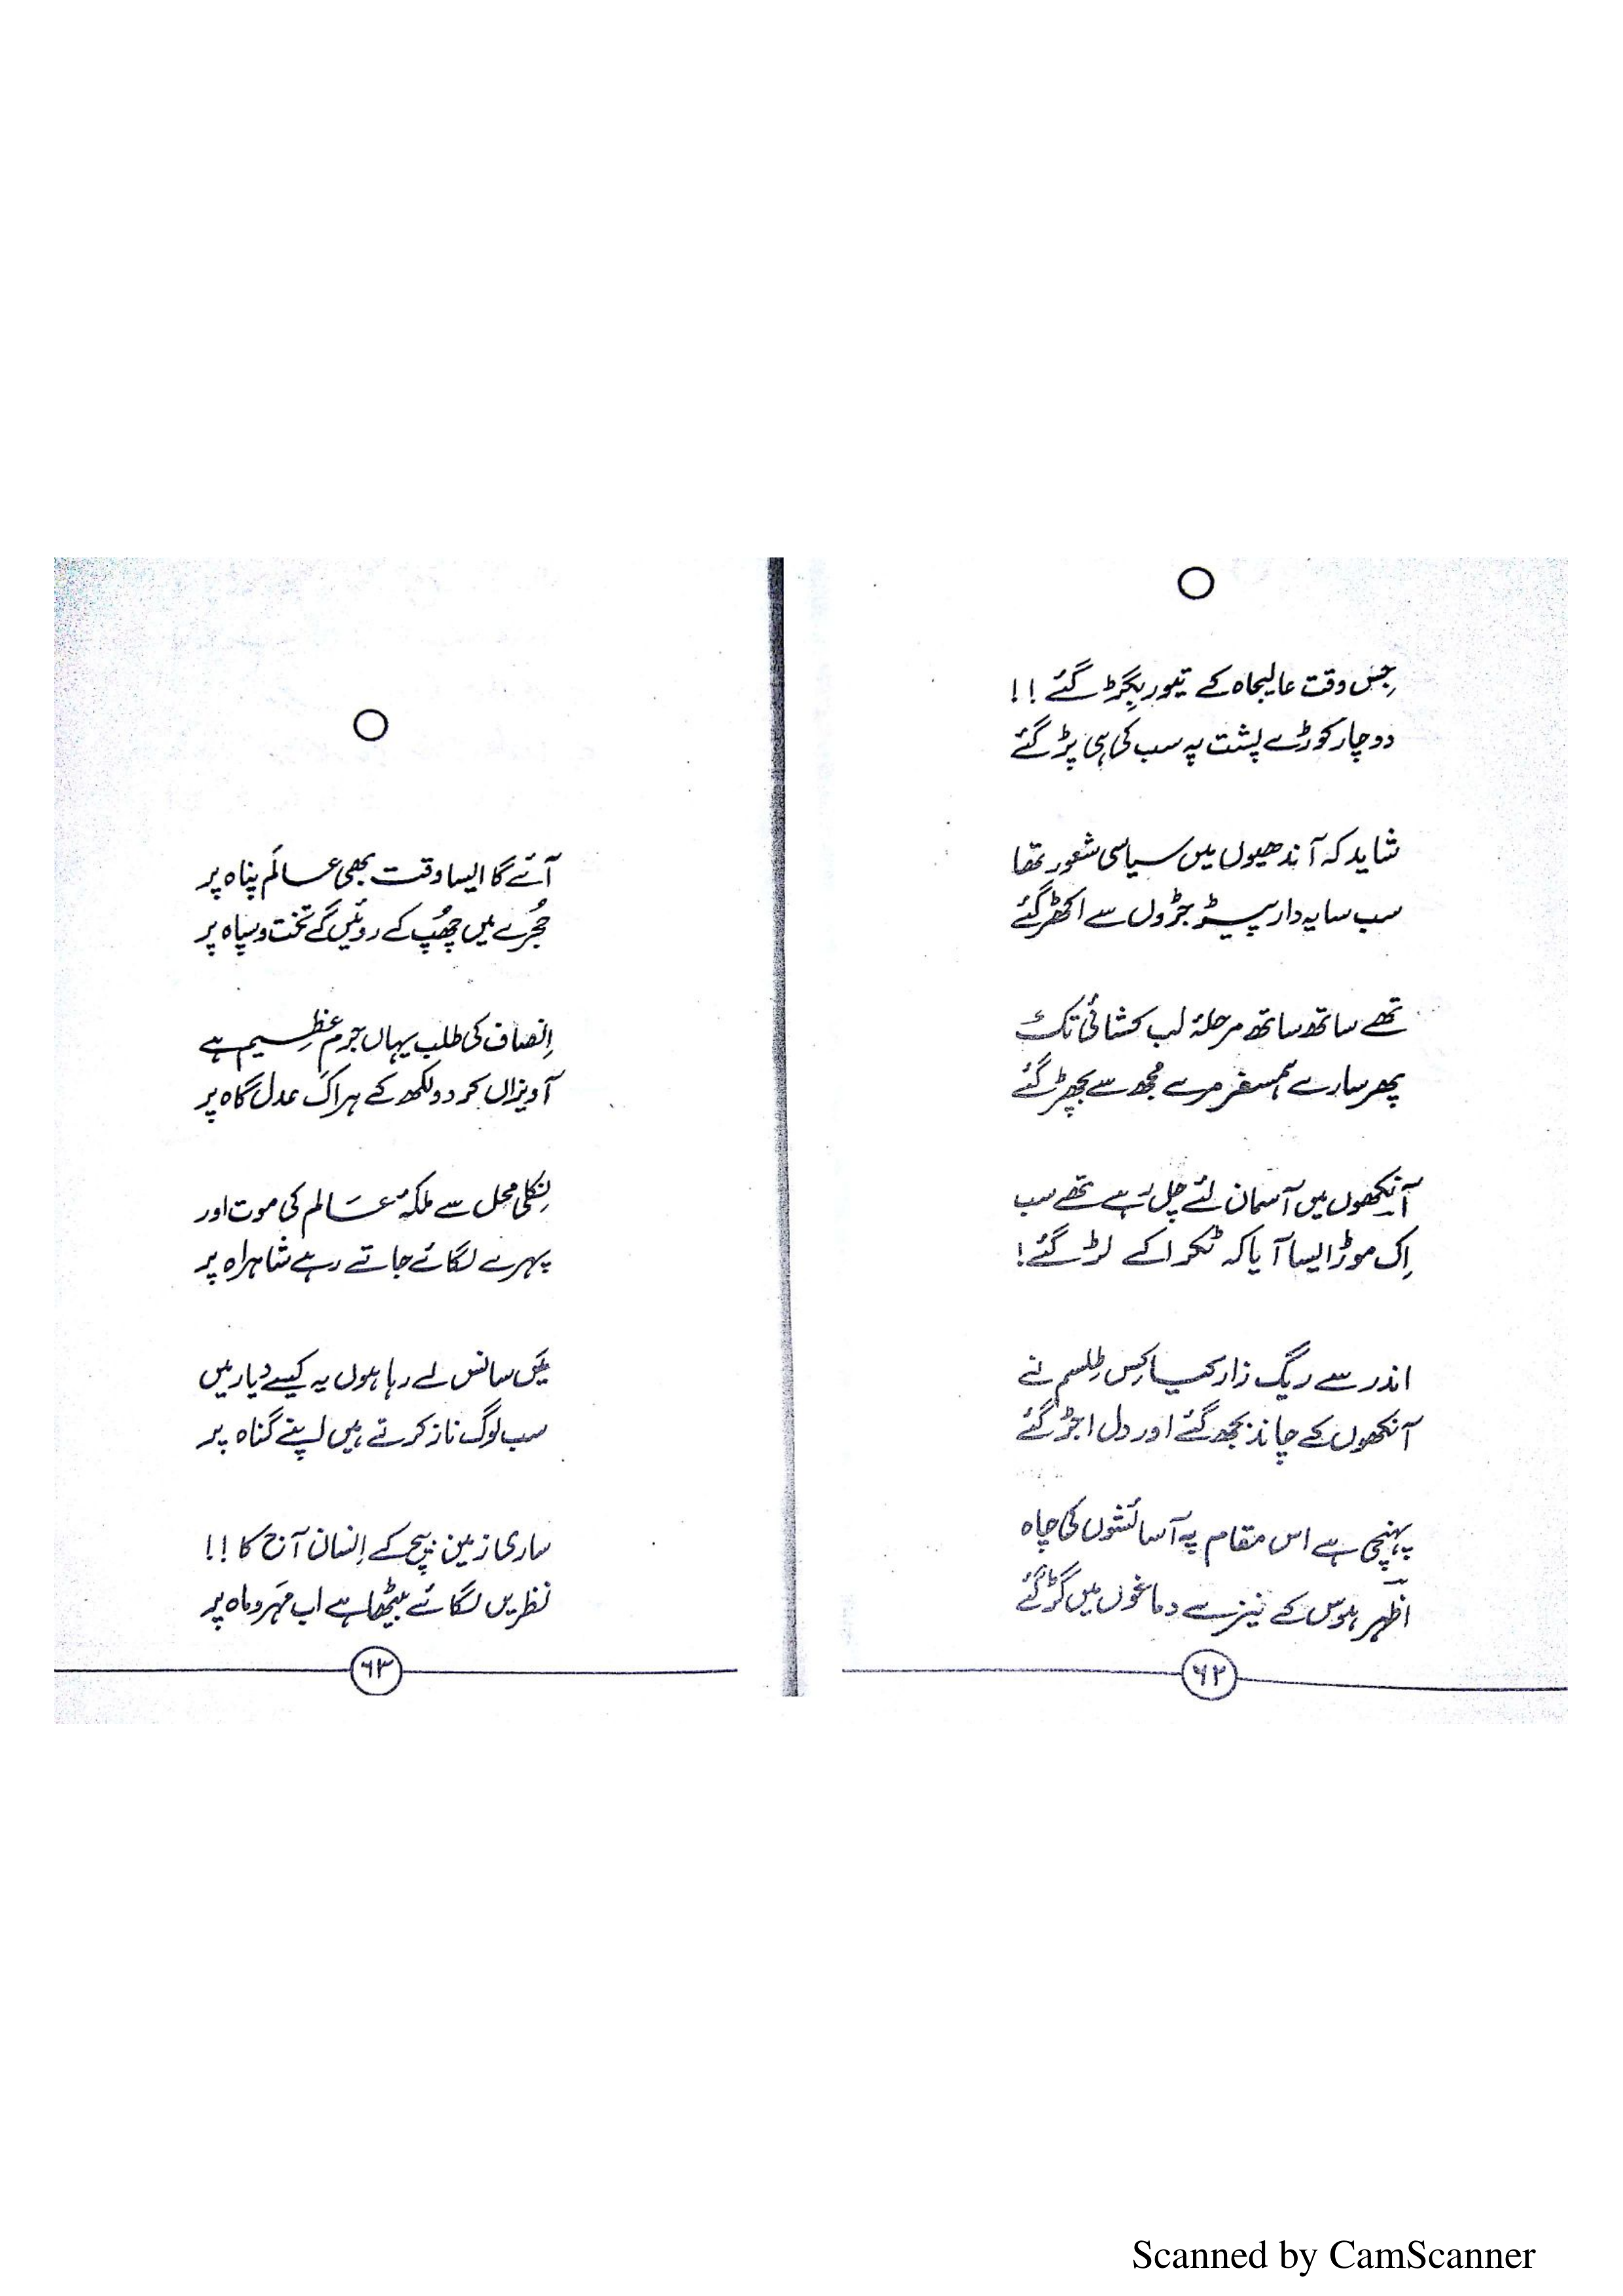 جِس وقت عالیجاہ کے تیور بِگڑ گئے !!
دو چار کوڑے پشت پہ سب کی ہی پڑ گئے
شاید کہ آندھیوں میں سیاسی شعور تھا
سب سایہ دار پیڑ جڑوں سے اکھڑ گئے
تھے ساتھ ساتھ مرحلۂ لب کشائی تک
پھر سارے ہمسفر مرے مجھ سے بچھڑ گئے
آنکھوں میں آسمان لئے چل رہے تھے سب
اِک موڑ ایسا آیا کہ ٹکرا کے لڑ گئے !
اندر سے ریگ زار کیا کِس طِلسم نے
آنکھوں کے چاند بجھ گئے اور دل اجڑ گئے
پہنچی ہے اس مقام پہ آسائشوں کی چاہ
اظہرؔ ہوس کے نیزے دماغوں میں گڑ گئے
۶۲
آئے گا ایسا وقت بھی عالَم پناہ پر
حُجرے میں چھُپ کے روئیں گے تخت و سپاہ پر
اِنصاف کی طلب یہاں جرمِ عظِیم ہے
آویزاں کر دو لکھ کے ہر اک عدل گاہ پر
نِکلی محل سے ملکۂ عَالم کی موت اور
پہرے لگائے جاتے رہے شاہراہ پر
مَیں سانس لے رہا ہوں یہ کیسے دیار میں
سب لوگ ناز کرتے ہیں اپنے گناہ پر
ساری زمین بیچ کے اِنسان آج کا !!
نظریں لگائے بیٹھا ہے اب مَہر و ماہ پر
۶۳
Scanned by CamScanner